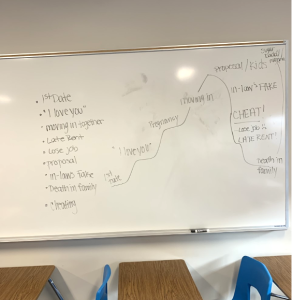 • 1st Date
• "I love you"
• moving in together
• Late Rent
• Lose job
• proposal
• in-laws Fake
• Death in family
• Cheating
1st Date
"I love you"
Pregnancy
moving in
Proposal / Kids
in-laws FAKE
CHEAT!
Lose job &
LATE RENT
Death in
family